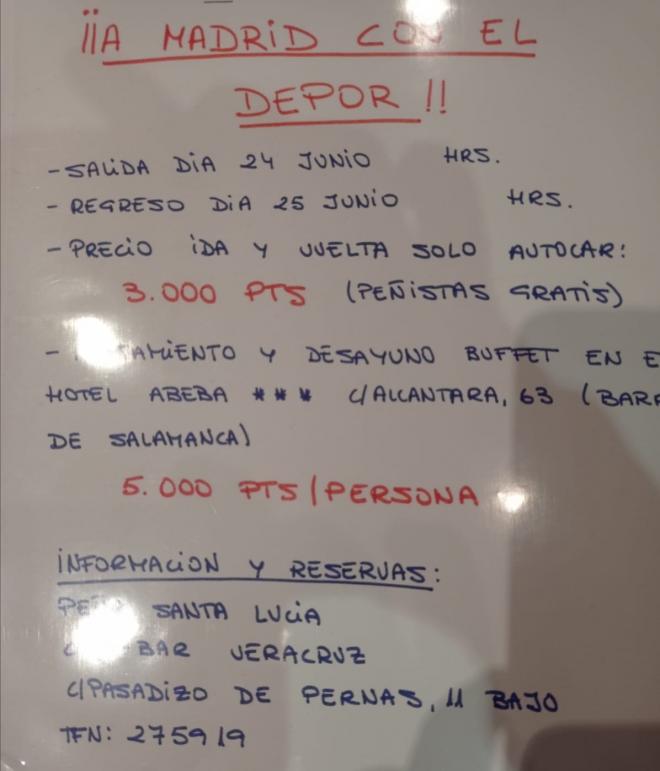 ¡¡A MADRID CON EL
DEPOR!!
- SALIDA DIA 24 JUNIO HRS.
- REGRESO DIA 25 JUNIO HRS.
- PRECIO IDA Y VUELTA SOLO AUTOCAR:
3.000 PTS (PEÑISTAS GRATIS)
- Y DESAYUNO BUFFET EN
HOTEL ABEBA *** C/ALCANTARA, 63 (
DE SALAMANCA)
5.000 PTS/PERSONA
INFORMACION Y RESERVAS:
SANTA LUCIA
BAR VERACRUZ
C/PASADIZO DE PERNAS, 11 BAJO
TFN: 275919